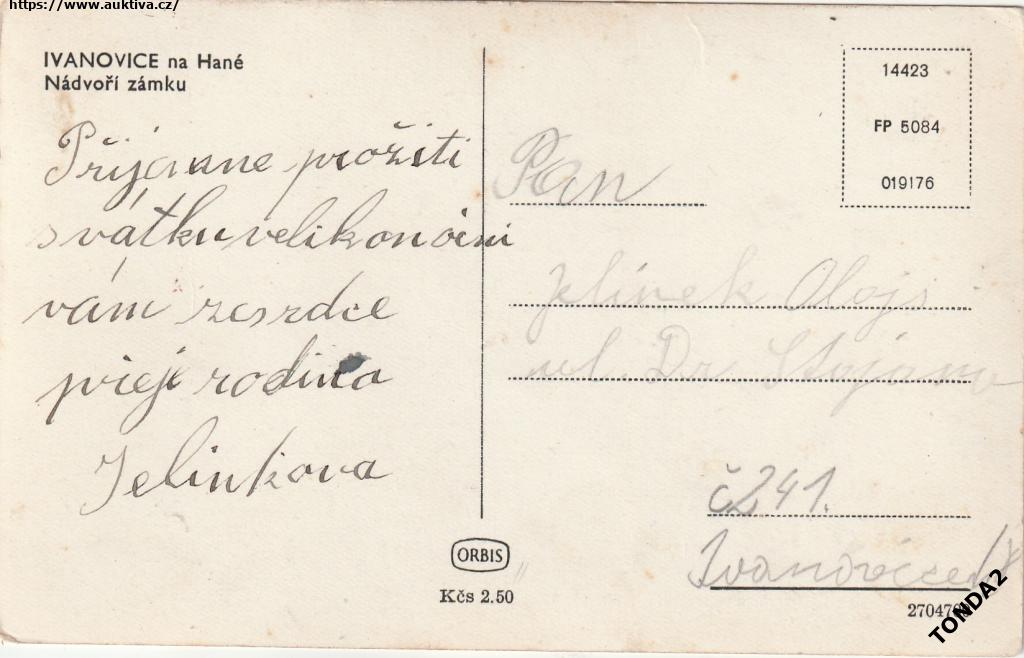 https://www.auktiva.cz/
IVANOVICE na Hané
Nádvoří zámku
Příjemne prožití
svátku velikonočni
vám ze srdce
přeje rodina
Jelinkova
ORBIS
Kčs 2.50
14423
FP 5084
019176
Pan
Jelínek Alojs
ul. Dr. Stojana
č 241.
Ivanovice
TONDA2